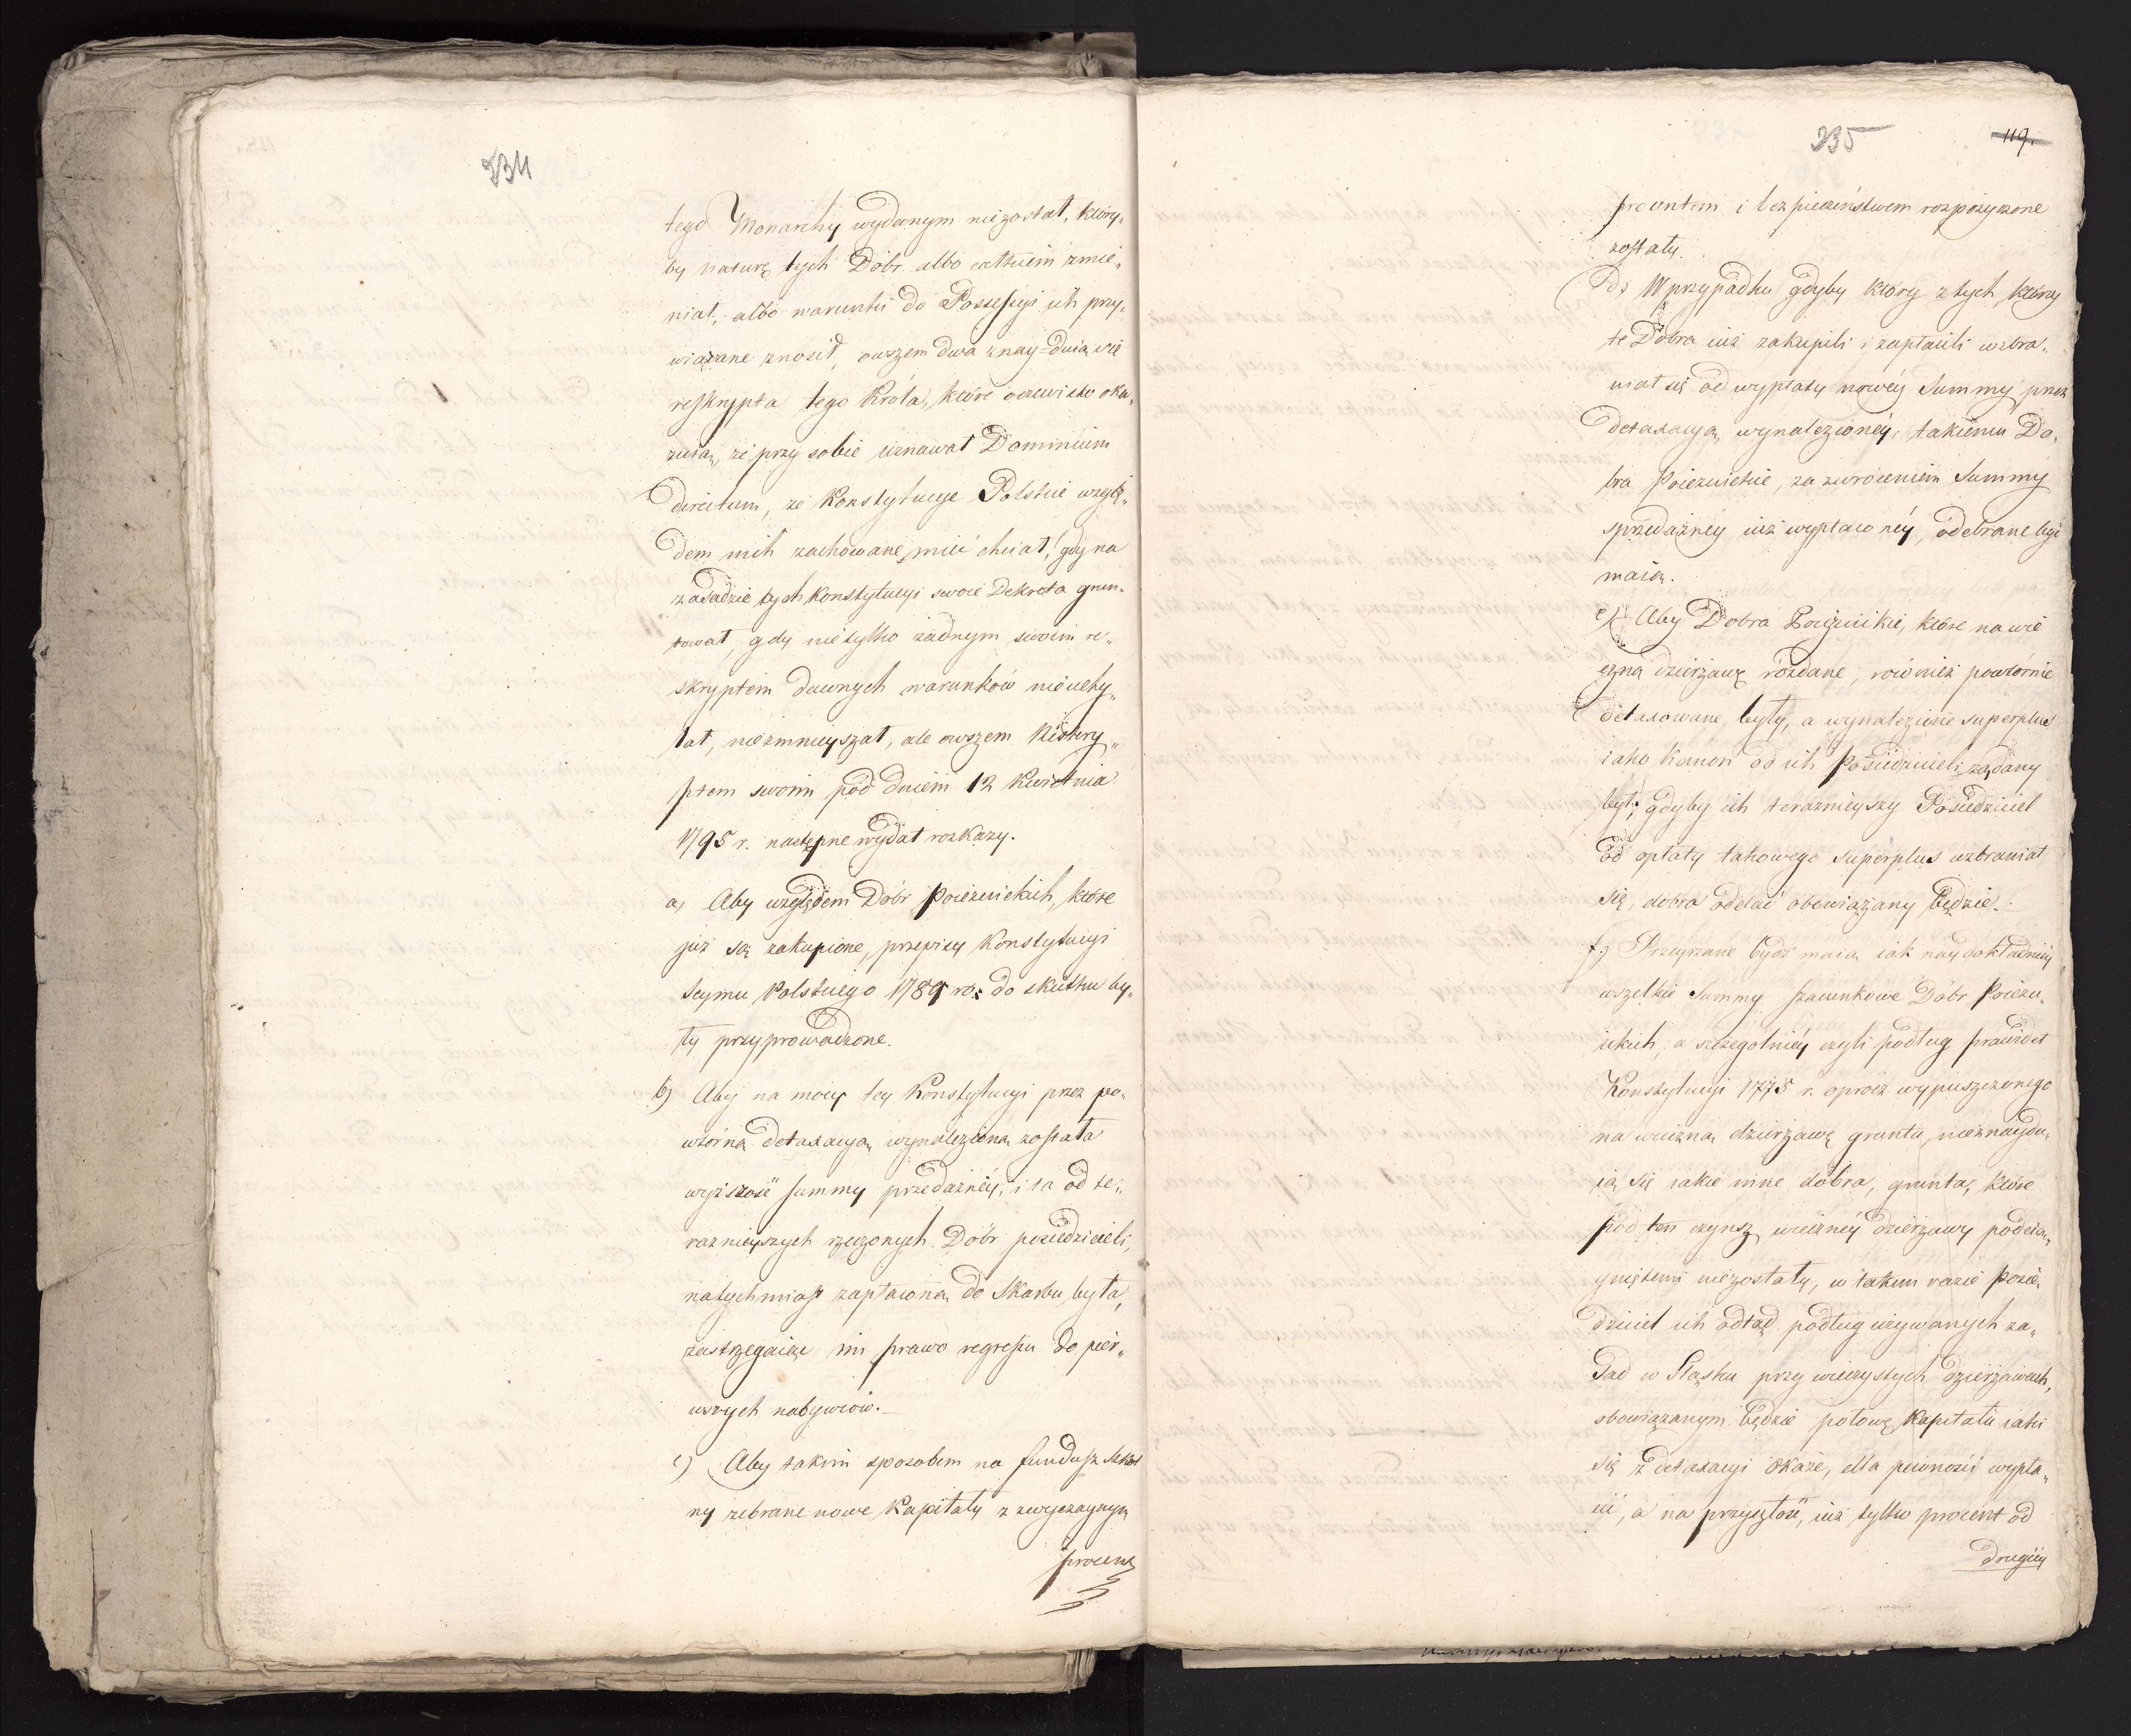 234
tego Monarchy wydanym niezostał, który„
by naturę tych Dobr albo całkiem zmie„
niał, albo warunki do Possessyi ich przy„
wiązane znosił, owszem dwa znay=duią się
reskrypta tego Króla, które oczewisto oka„
zuią, że przy sobie uznawał Dominium
directum, że Konstytucye Polskie wzglę„
dem nich zachowane mieć chciał, gdy na
zasadzie tych Konstytucyi swoie Dekreta grun„
tował, gdy nie tylko żadnym swoim re„
skryptem dawnych warunków nieuchy„
lał, niezmnieyszał, ale owszem Reskry„
ptem swoim pod dniem 12 Kwietnia
1795 r. następne wydał rozkazy.
a, Aby względem Dóbr Poiezuickich, które
już są zakupione, przepisy Konstytucyi
Seymu Polskiego 1789 ro: do skutku by„
ły przyprowadzone.
b) Aby na mocy tey Konstytucyi przez po„
wtórną detaxacyą wynaleziona została
wyższość summy przedażnéy, i ta od te„
raznieyszych rzeczonych Dóbr posiedzicieli,
natychmiast zapłacona do Skarbu była,
zastrzegaiąc im prawo regressu do pier„
wszych nabywców.
c) Aby takim sposobem na fundusz szkol
ny zebrane nowe Kapitały z zwyczaynym
procen
235
119.
procentem i bezpieczeństwem rozpożyczone
zostały.
d, W przypadku gdyby który z tych, którzy
te Dobra iuż zakupili i zapłacili wzbra„
niał się od wypłaty nowéy Summy przez
detaxacyą wynalezionéy, takiemu Do„
bra Poiezuickie, za zwróceniem Summy
sprzedażnéy iuż wypłaconéy, odebrane bydź
maią.
e) Aby Dobra Poiezuickie, które na wie
czną dzierżawę rozdane, rownież powtórnie
detaxowane były, a wynalezione superplus
iako Kanon od ich Posiedzicieli żądany
był; gdyby ich teraznieyszy Posiedziciel
od opłaty takowego superplus wzbraniał
się, dobra oddać obowiązany będzie.
f) Przeyrzane bydź maią iak naydokładniéy
wszelkie Summy szacunkowe Dóbr Poiezu„
ickich, a szczególniéy czyli podług prawideł
Konstytucyi 1775 r. oprócz wypuszczonego
na wieczną dzierżawę gruntu, nieznaydu„
ią się iakie inne dobra, grunta, które
pod ten czynsz wiecznéy dzierżawy podcią„
gniętemi niezostały, w takim razie posie„
dziciel ich odtąd podług używanych za„
sad w Sląsku przy wieczystych dzierżawach,
obowiązanym będzie połowę Kapitału iaki
się z detaxacyi okaże, dla pewności wypła„
cić, a na przyszłość, iuż tylko procent od
drugiéy